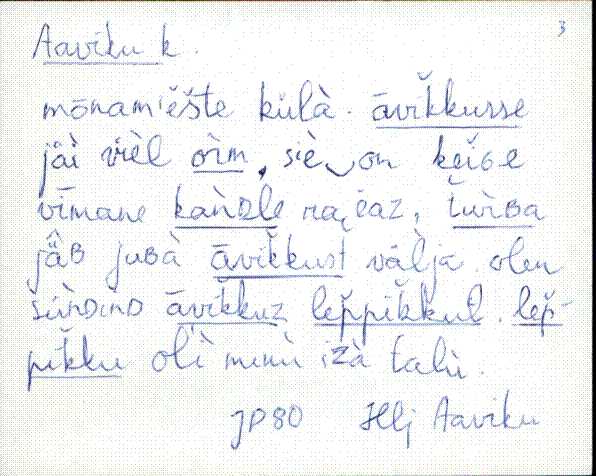 3
Aaviku k.
mōnamìèšte külà. āvik̆kusse
jä̀i vièl orm, siè on keiGe
vīmane kaǹDle rajàaz, t̆ur̀Ba
jä̂B juBà āvik̆kust vàlja. olen
süǹDinD āvik̆kuz lep̆pik̆kul. lep̆-
pik̆ku olì minù izà talù.
JP80 Hlj Aaviku